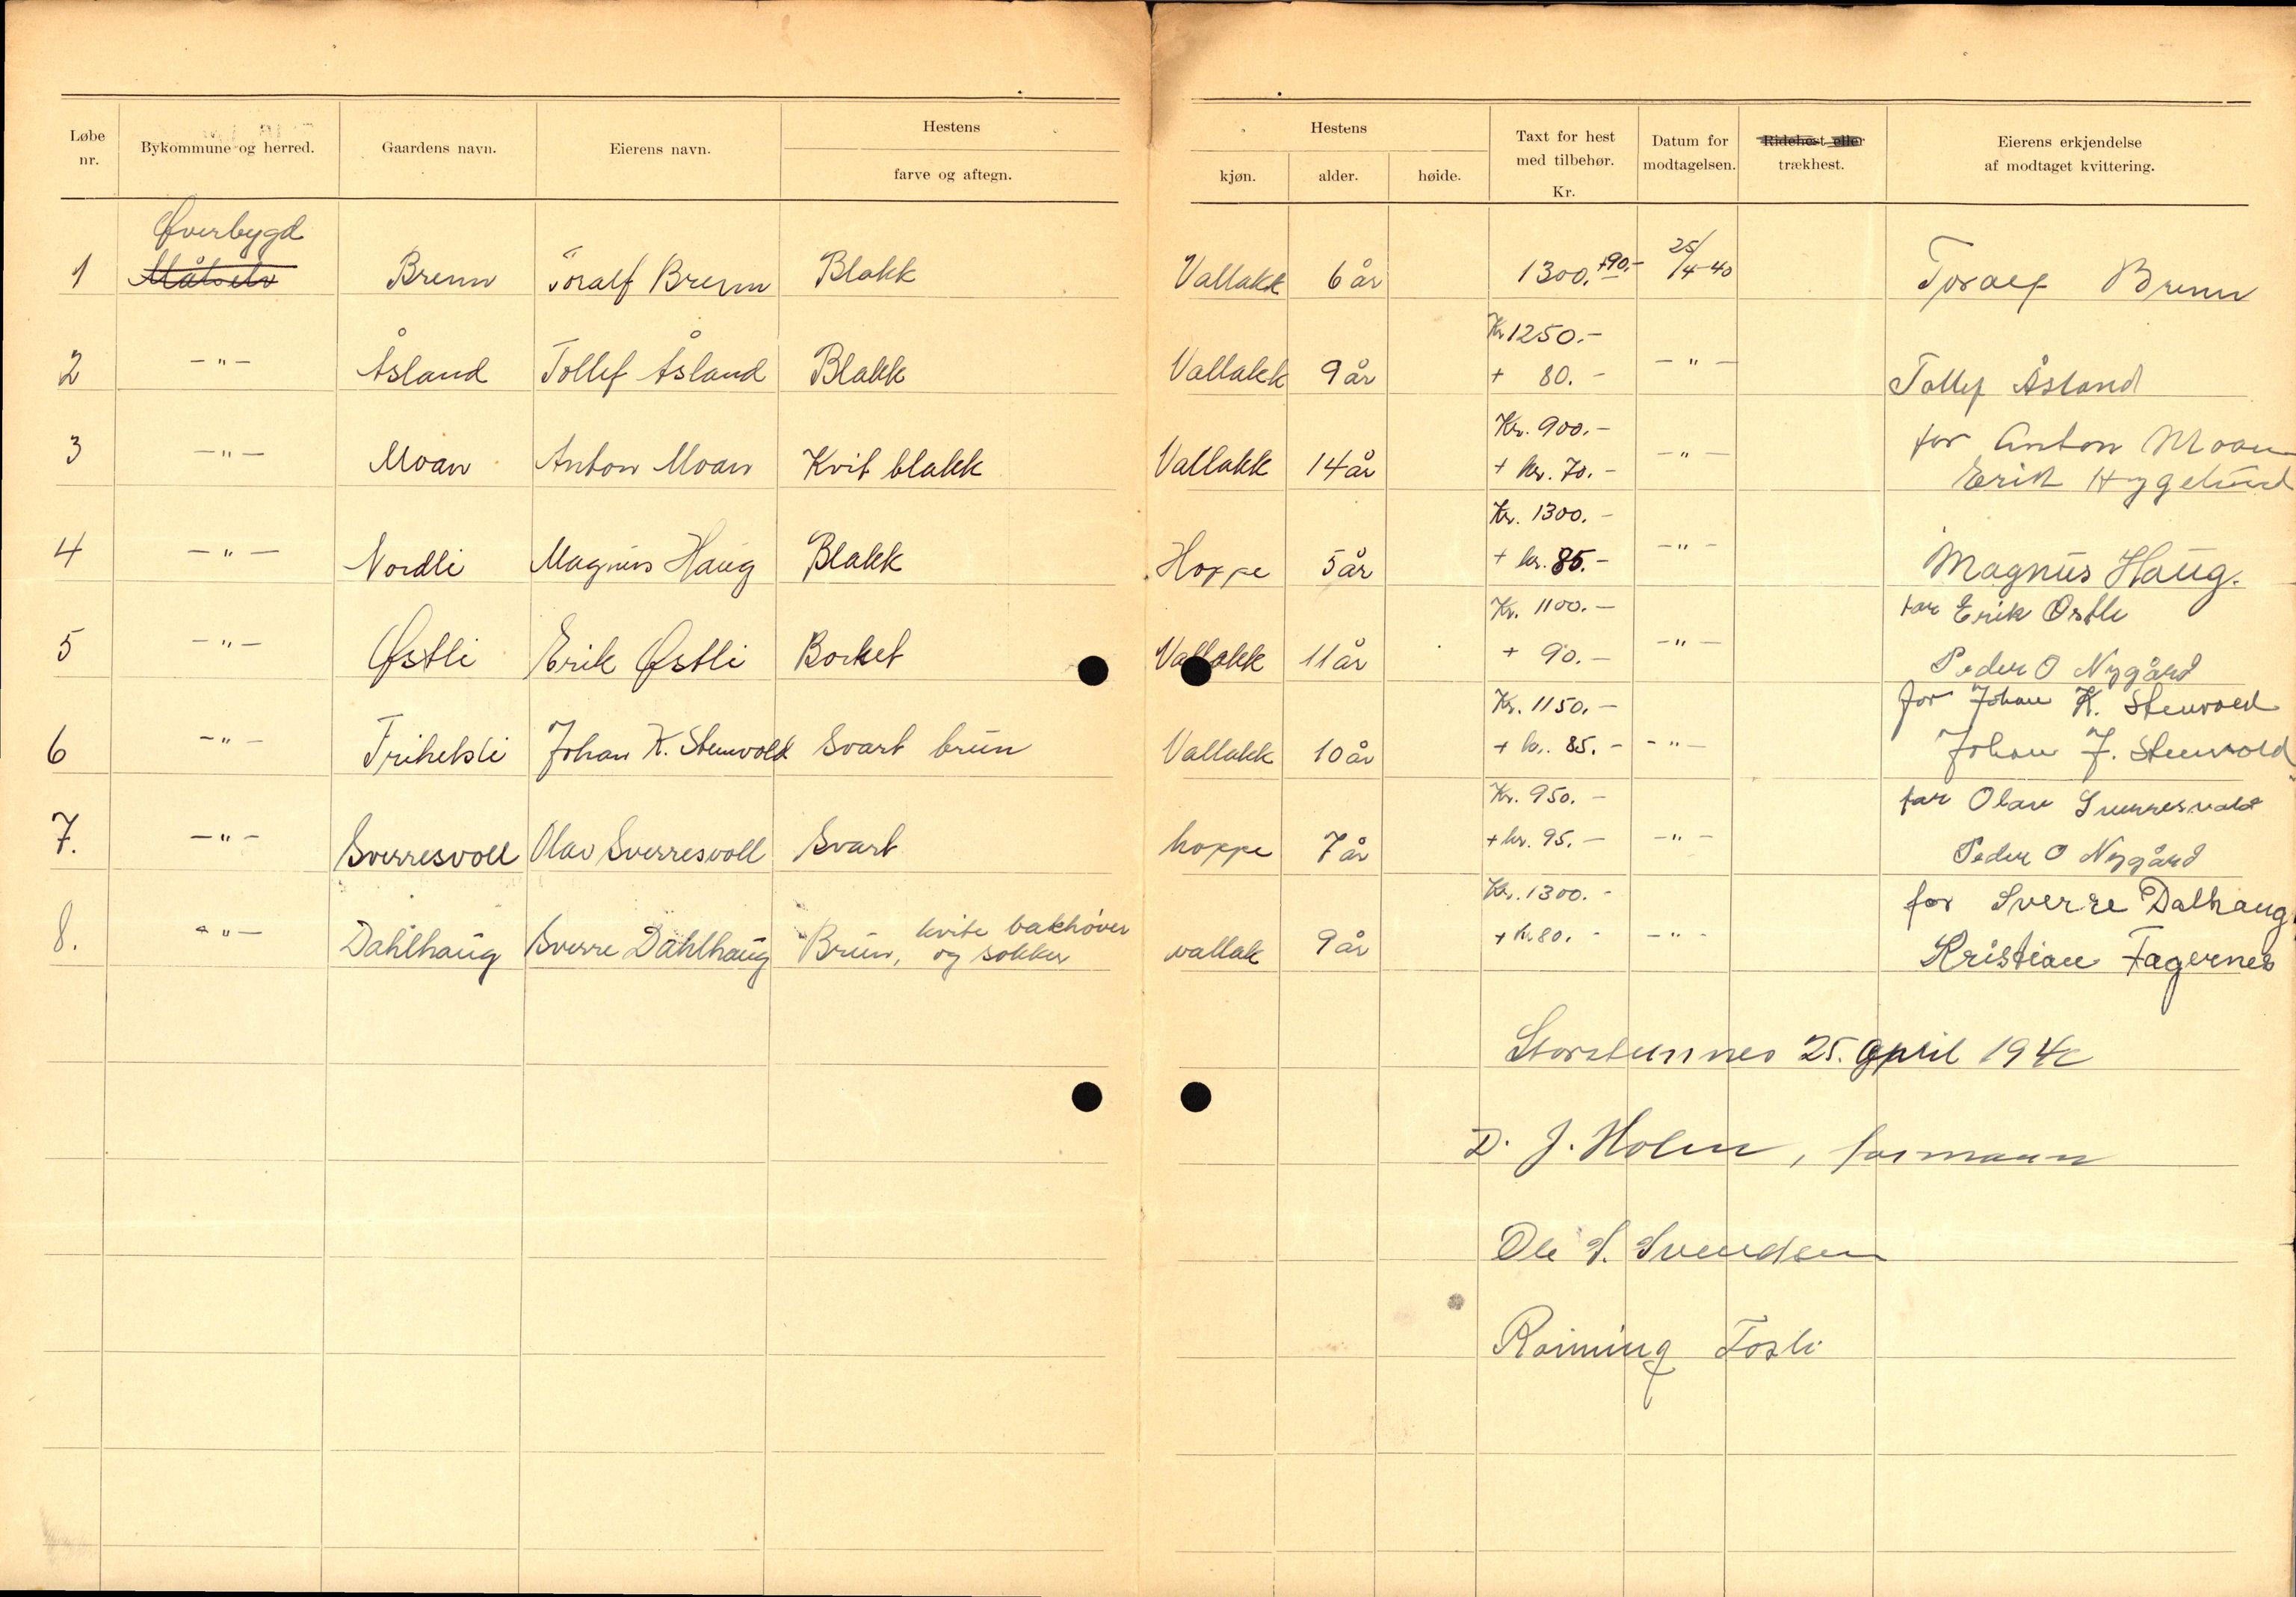 Løbe nr. Bykommune og herred. Gaardens navn. Eierens navn. Hestens farve og aftegn. Hestens kjøn. alder. høide. Taxt for hest med tilbehør. Kr. Datum for modtagelsen. Ridehest eller trækhest. Eierens erkjendelse af modtaget kvittering.
Øverbygd
1 Målselv Brenn Toralf Brenn Blakk Vallakk 6 år 1300.- +90.- 25/4-40 Toralf Brenn
Kr 1250.-
2 -"- Åsland Tollef Åsland Blakk Vallakk 9 år + 80.- -"- Tollef Åsland
Kr. 900.- for Anton Moan
3 -"- Moan Anton Moan Kvit blakk Vallakk 14 år + kr. 70.- -"- Erik
Kr. 1300.-
4 -"- Nordli Magnus Haug Blakk Hoppe 5 år + kr. 85.- -"- Magnus Haug.
Kr. 1100.- for Erik Østli
5 -"- Østli Erik Østli Borket Vallakk 11 år + 90.- -"- Peder O Nygård
Kr. 1150.- for Johan K. Stenvold
6 -"- Frihetsli Johan K. Stenvold Svart brun Vallakk 10 år + kr. 85.- -"- Johan J. Stenvold
Kr. 950.- for Olav Sverresvold
7. -"- Sverresvoll Olav Sverresvoll Svart hoppe 7 år + kr. 95.- -"- Peder O Nygård
Kr. 1300.- for Sverre Dalhaug
8. -"- Dahlhaug Sverre Dahlhaug Brun, kvite bakhøver og sokker vallak 9 år + kr 80.- -"- Kristian Fagernes
Storsteinnes 25. April 1940
D. J. Holm, formann
Ole S. Svendsen
Fosli